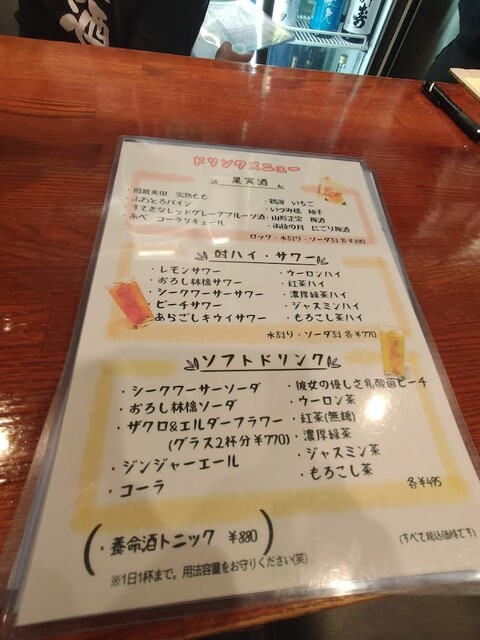 酒
ドリンクメニュー
果実酒
・鳳凰美田 完熟もも
・ふわとろパイン
・すてきなレッドグレープフルーツ酒
・あべ コーラリキュール
・鶴梅 いちご
・いづみ橋 柚子
・山形正宗 梅酒
・雨後の月 にごり梅酒
ロック・水割り・ソーダ割 各¥880
酎ハイ・サワー
・レモンサワー
・おろし林檎サワー
・シークワーサーサワー
・ピーチサワー
・あらごしキウイサワー
・ウーロンハイ
・紅茶ハイ
・濃厚緑茶ハイ
・ジャスミンハイ
・もろこし茶ハイ
水割り・ソーダ割 各¥770
ソフトドリンク
・シークワーサーソーダ
・おろし林檎ソーダ
・ザクロ&エルダーフラワー
(グラス2杯分¥770)
・ジンジャーエール
・コーラ
・彼女の優しさ乳酸菌ピーチ
・ウーロン茶
・紅茶(無糖)
・濃厚緑茶
・ジャスミン茶
・もろこし茶
各¥495
(・養命酒トニック ¥880)
※1日1杯まで。用法容量をお守りください(笑)
(すべて税込価格です)